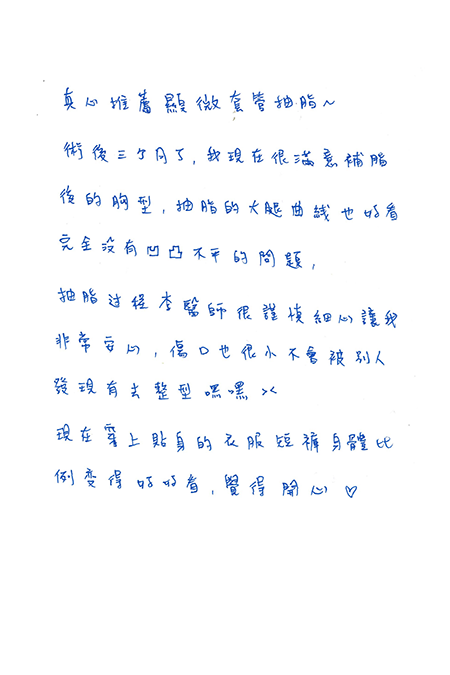 真心推薦顯微套管抽脂~
術後三个月了,我現在很滿意補脂
後的胸型,抽脂的大腿曲线也好看
完全没有凹凸不平的問題,
抽脂过程李醫師很謹慎細心讓我
非常安心,傷口也很小不會被別人
發現有去整型嘿嘿><
現在穿上貼身的衣服短褲身體比
例变得好好看,覺得開心♡